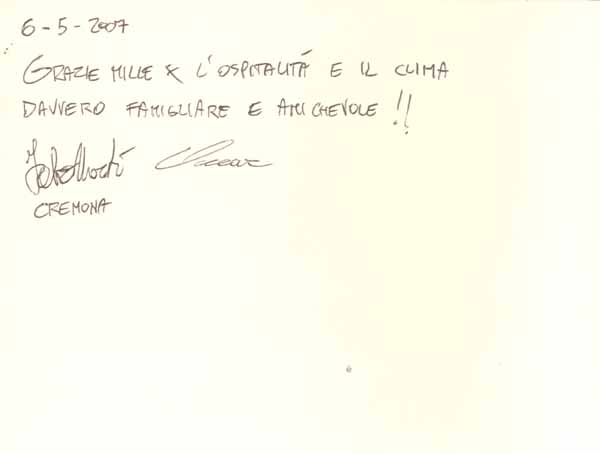 6-5-2007
GRAZIE MILLE X L'OSPITALITÁ E IL CLIMA
DAVVERO FAMIGLIARE E AMICHEVOLE !!
CREMONA